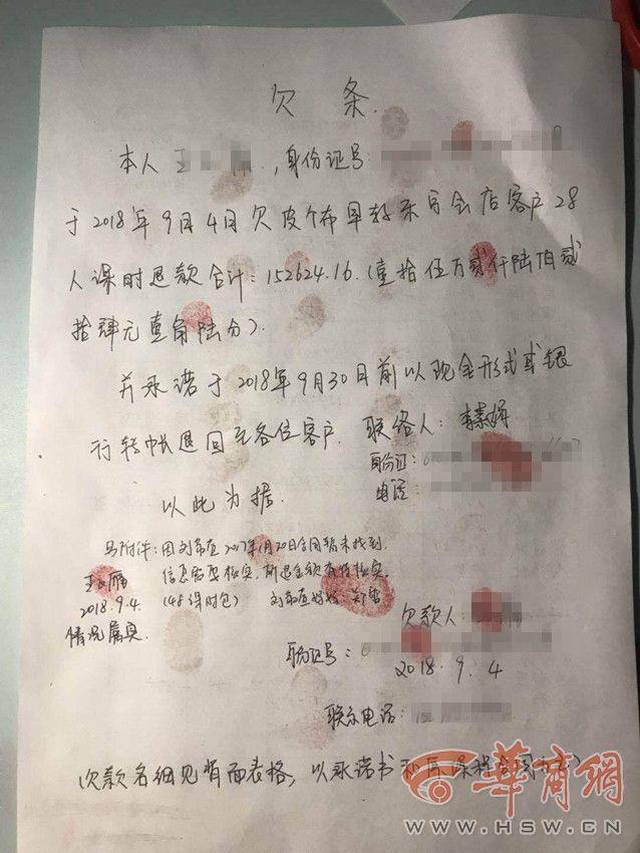 欠条.
本人王 ,身份证号
于2018年9月4日欠皮个布早教 会店客户28
人课时退款合计:152624.16.(壹拾伍万贰仟陆佰贰
拾肆元壹角陆分).
并承诺于2018年9月30日前以现金形式或银
行转帐退回至各位客户. 联络人:
身份证:
电话:
以此为据.
另附件:因刘 2017年1月20日合同暂未找到.
信息需要核实,所退金额 核实.
2018.9.4. (48课时包) 刘
情况属实.
欠款人:
身份证号:
2018.9.4
联系电话:
(欠款名细见背面表格,以承诺书和 课程
华商网
WWW.HSW.CN